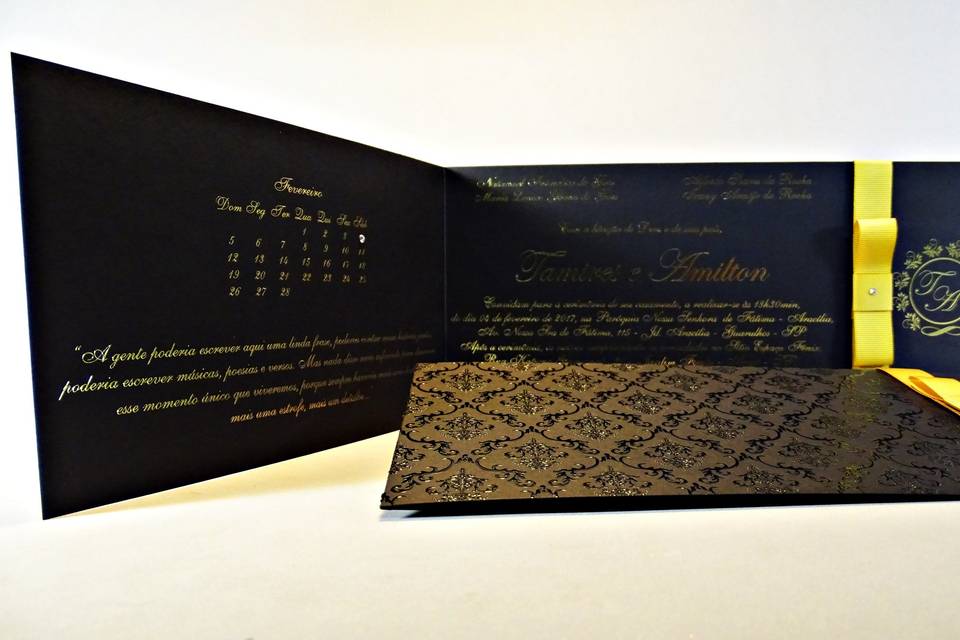 Fevereiro
Dom Seg Ter Qua Qui Sex Sáb
1 2 3
5 6 7 8 9 10 11
12 13 14 15 16 17 18
19 20 21 22 23 24 25
26 27 28
"A gente poderia escrever aqui uma linda frase,
poderia escrever músicas, poesias e versos. Mas nada
esse momento único que viveremos, porque sempre
mais uma estrofe, mais um
da Rocha
Araújo da Rocha
Com a bênção de Deus e de seus pais,
Tamires e Amilton
Convidam para a cerimônia de seu casamento, a realizar-se às 19h30min,
do dia 04 de fevereiro de 2017, na Paróquia Nossa Senhora de Fátima - Aracília,
Av. Nossa Sra de Fátima, 115 - Jd. Aracília - Guarulhos - SP.
Após a cerimônia, os noivos Espaço Fênix
TA